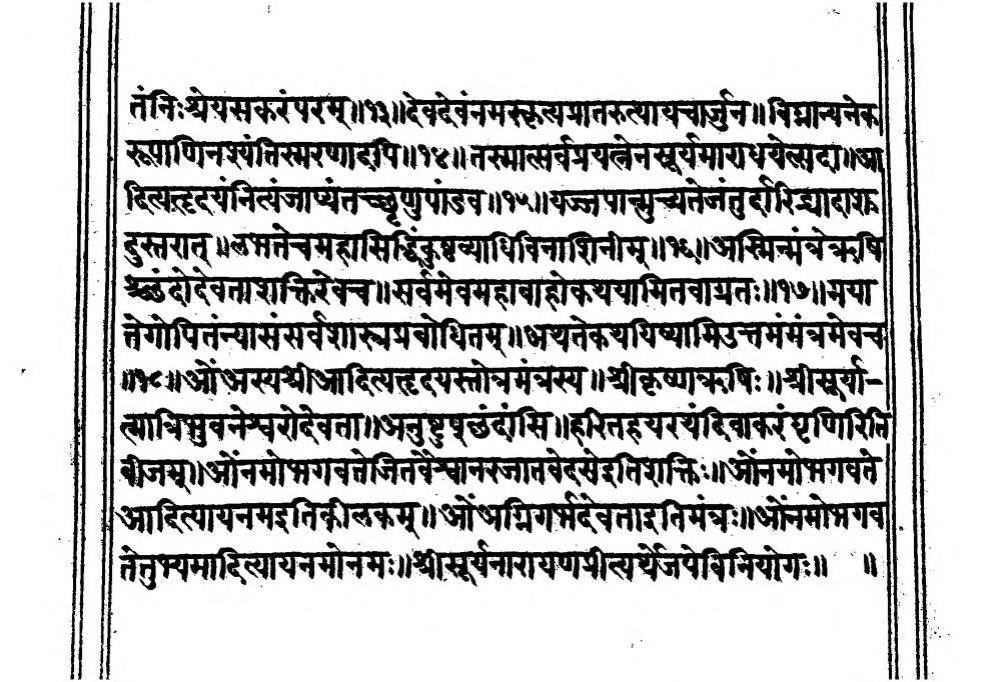 तंनिःश्रेयसकरंपरम्॥१३॥देवदेवंनमस्कृत्यप्रातरुत्थायचार्जुन॥विघ्नान्यनेक
रूपाणिनश्यंतिस्मरणादपि॥१४॥तस्मात्सर्वप्रयत्नेनसूर्यमाराधयेत्सदा॥आ
दित्यहृदयंनित्यंजाप्यंतच्छृणुपांडव॥१५॥यज्जपान्मुच्यतेजंतुर्दारिद्र्यादाशु
दुस्तरात्॥लभतेचमहासिद्धिंकुष्ठव्याधिविनाशिनीम्॥१६॥अस्मिन्मंत्रेऋषि
श्छंदोदेवताशक्तिरेवच॥सर्वमेवमहाबाहोकथयामितवाग्रतः॥१७॥मया
तेगोपितंन्यासंसर्वशास्त्रप्रबोधितम्॥अथतेकथयिष्यामिउत्तमंमंत्रमेवच
॥१८॥ओंअस्यश्रीआदित्यहृदयस्तोत्रमंत्रस्य॥श्रीकृष्णऋषिः॥श्रीसूर्या-
त्मात्रिभुवनेश्वरोदेवता॥अनुष्टुप्छंदांसि॥हरितहयरथंदिवाकरंघृणिरिति
बीजम्॥ओंनमोभगवतेजितवैश्वानरजातवेदसेइतिशक्तिः॥ओंनमोभगवते
आदित्यायनमइतिकीलकम्॥ओंअग्निगर्भदेवताइतिमंत्रः॥ओंनमोभगव
तेतुभ्यमादित्यायनमोनमः॥श्रीसूर्यनारायणप्रीत्यर्थेजपेविनियोगः॥ ॥